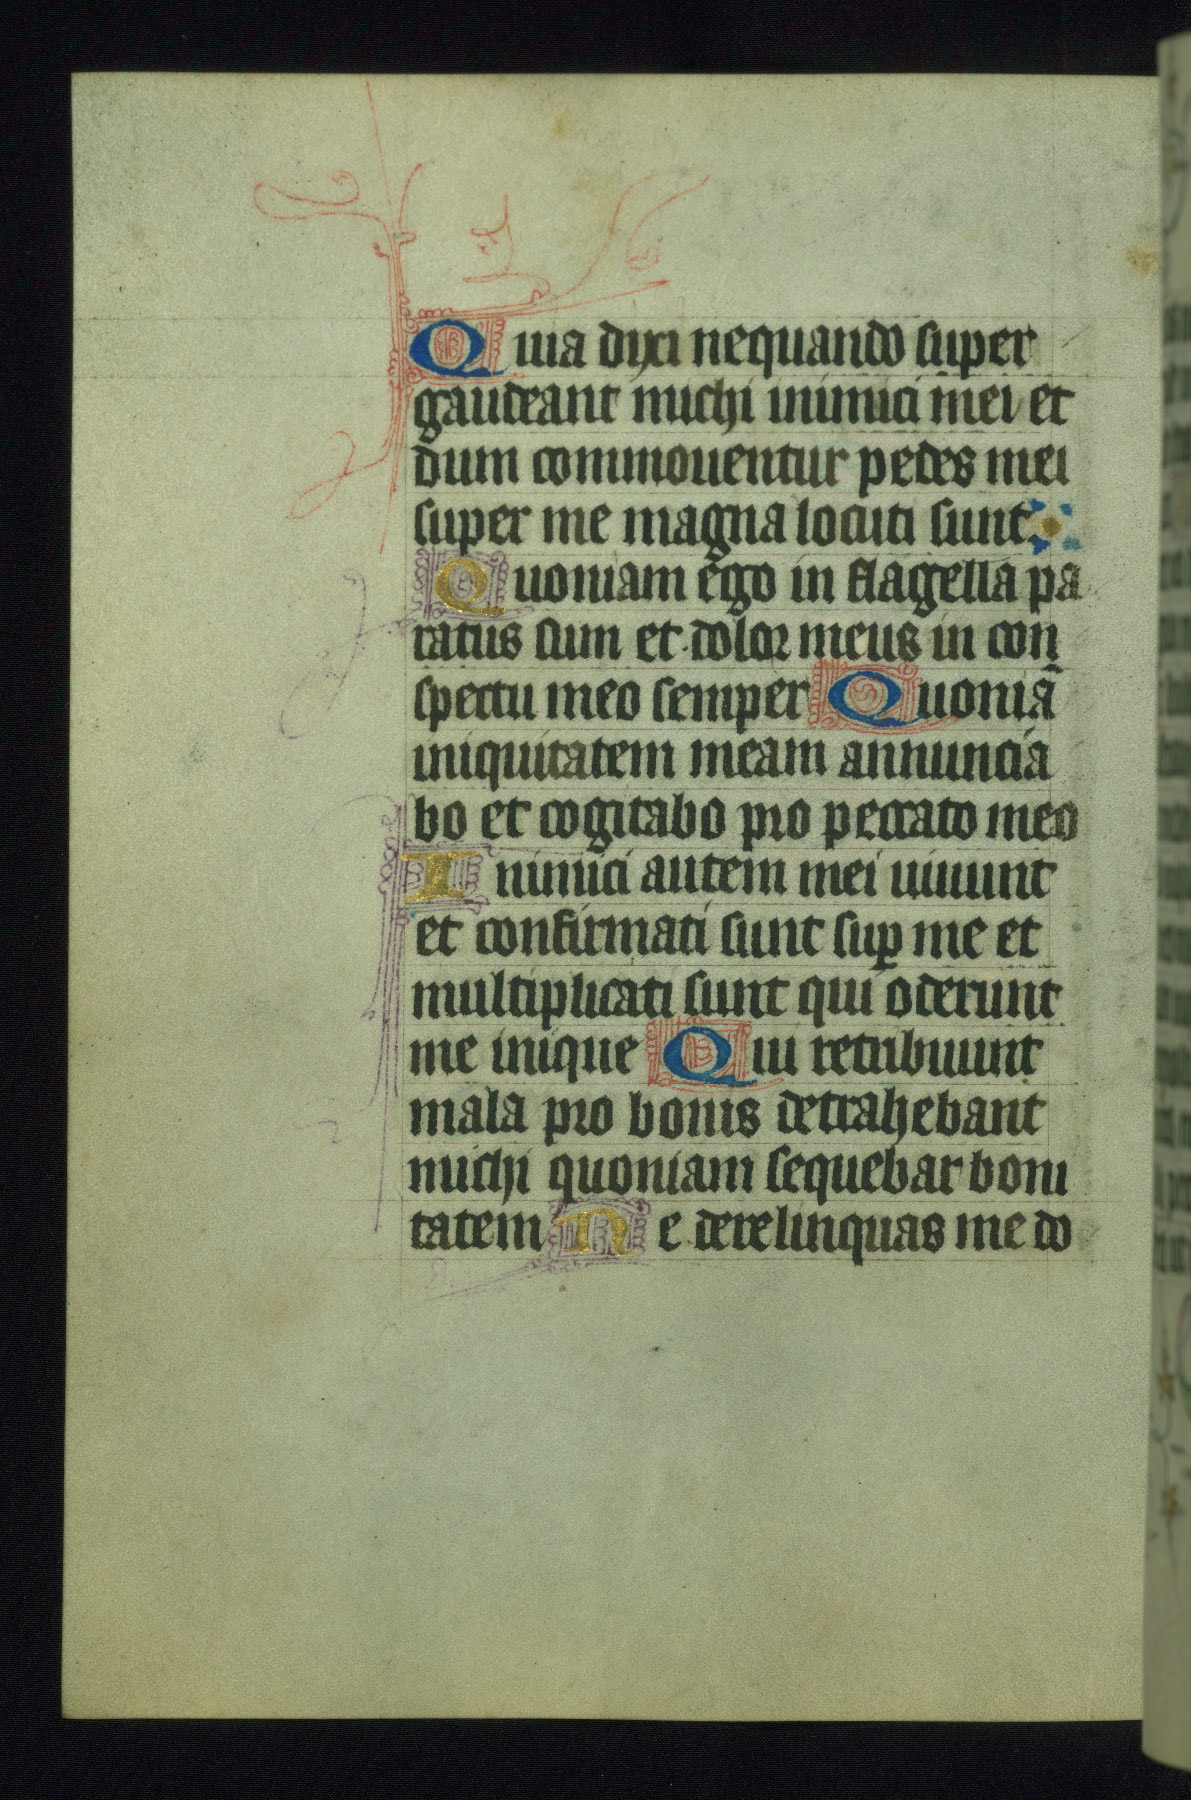 Quia dixi nequando super
gaudeant michi inimici mei et
dum commouentur pedes mei
super me magna locuti sunt.
Quoniam ego in flagella pa
ratus sum et dolor meus in con
spectu meo semper Quoniā
iniquitatem meam annuncia
bo et cogitabo pro peccato meo
Inimici autem mei uiuunt
et confirmati sunt suꝑ me et
multiplicati sunt qui oderunt
me inique Qui retribuunt
mala pro bonis detrahebant
michi quoniam sequebar boni
tatem Ne derelinquas me do